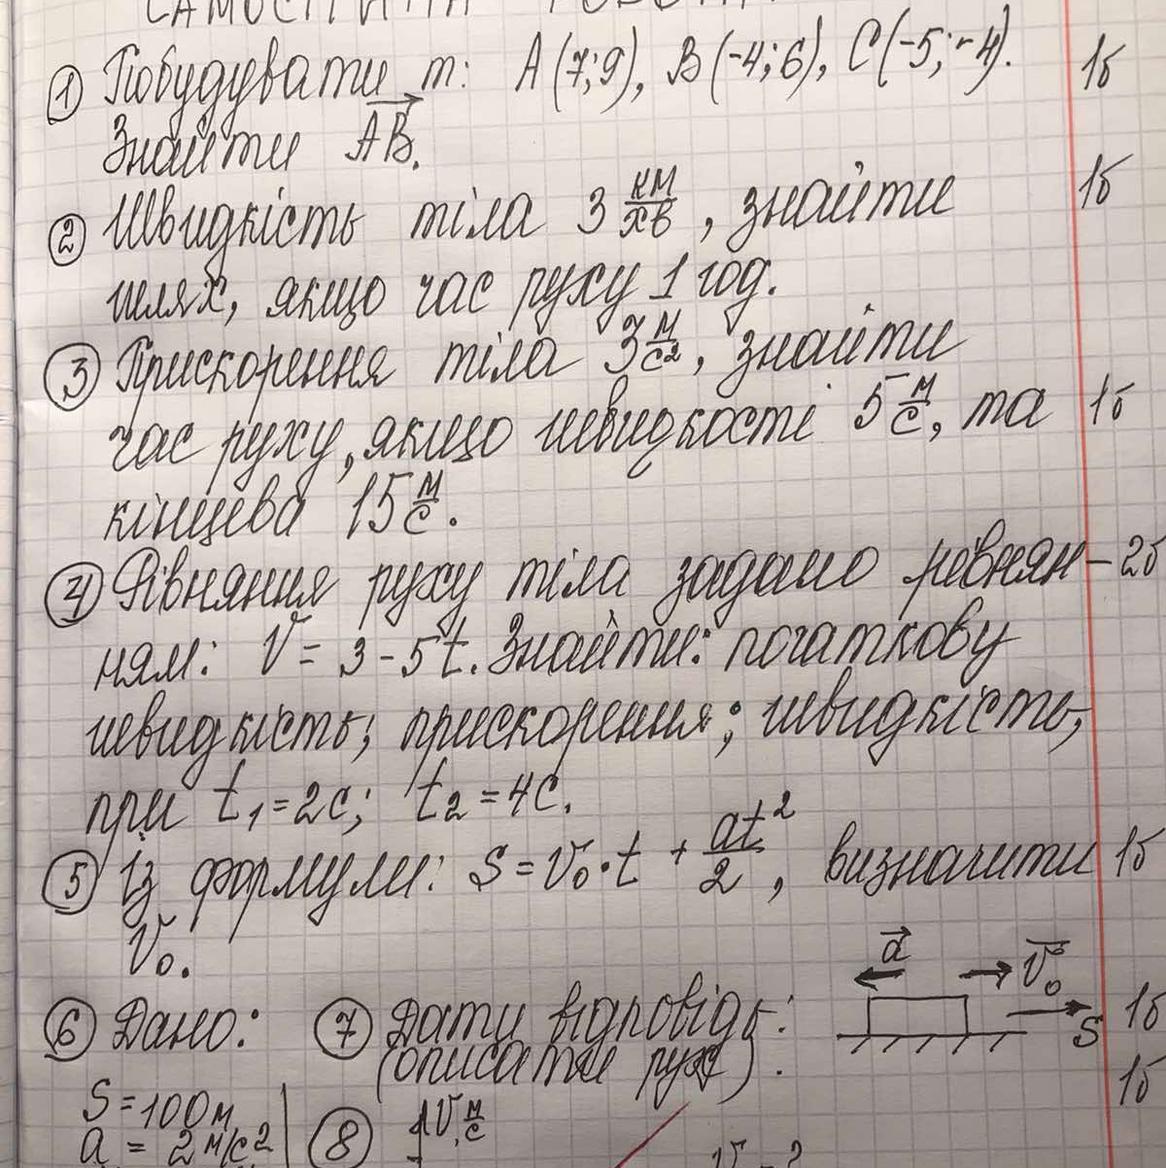 САМОСТІЙНА РОБОТА
1 Побудувати т: А(7;9), В(-4;6), С(-5;-4). 1б
Знайти АВ.
2 Швидкість тіла 3 км/хв, знайти 1б
шлях, якщо час руху 1 год.
3 Прискорення тіла 3 м/с2, знайти
час руху, якщо швидкості 5 м/с, та 1б
кінцева 15 м/с.
4 Рівняння руху тіла задано рівнян- 2б
ням: V = 3 - 5t. Знайти: початкову
швидкість; прискорення; швидкість,
при t1 = 2с; t2 = 4с.
5 Із формули: S = V0·t + at²/2, визначити 1б
V0.
a V0
6 Дано: 7 Дати відповідь: S 1б
(описати рух). 1б
S = 100м
a = 2 м/с2 8 V м/с